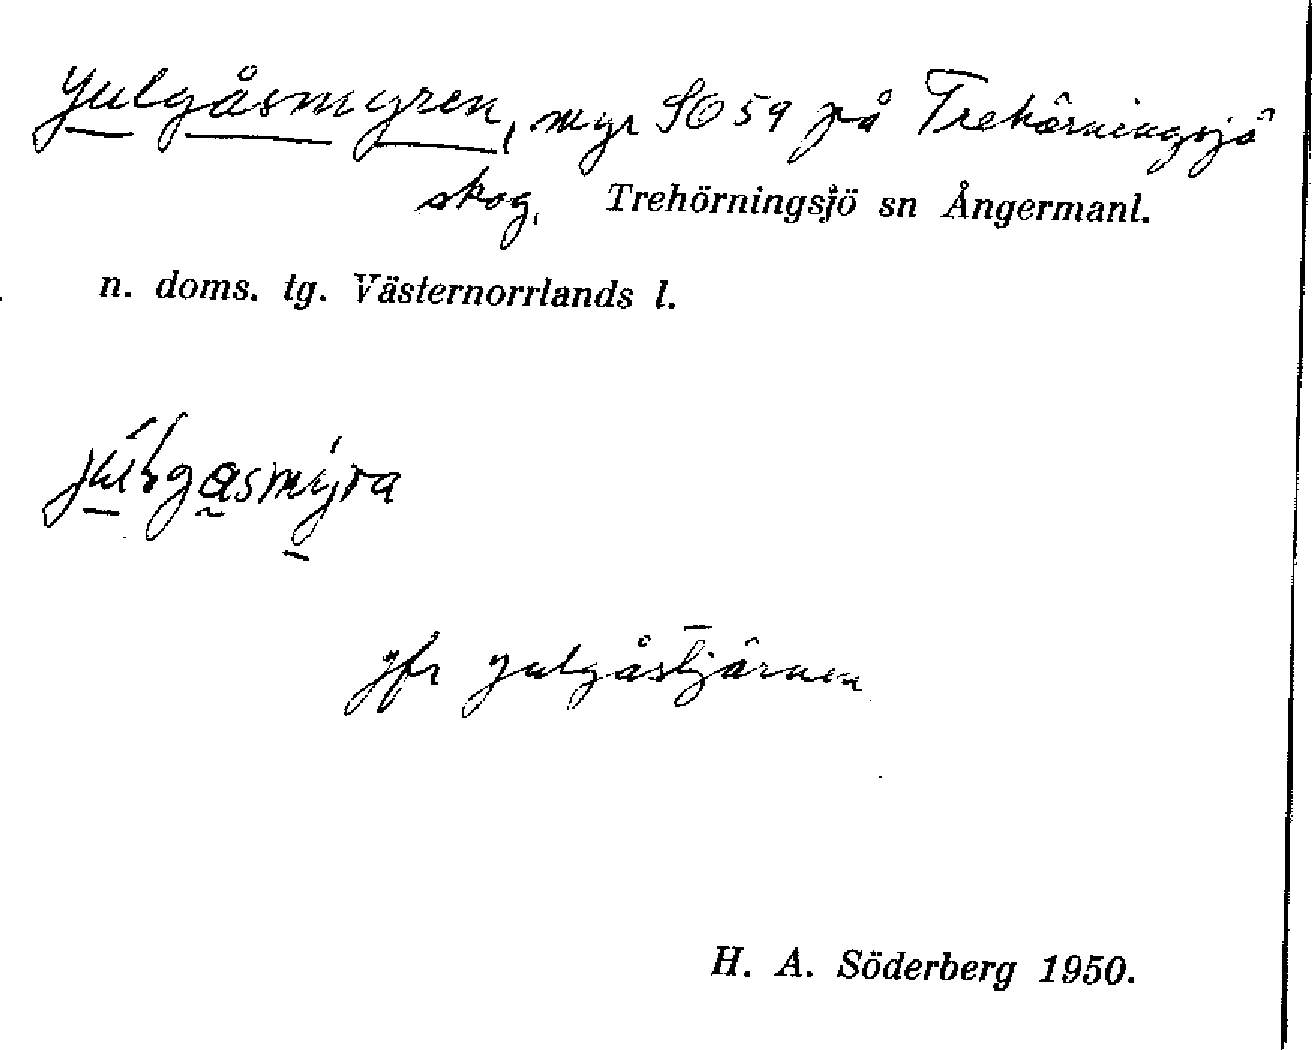 Julgåsmyren, myr SO 59 på Trehörningsjö
skog, Trehörningsjö sn Ångermanl.
n. doms. tg. Västernorrlands l.
jfr Julgåstjärnen
H. A. Söderberg 1950.